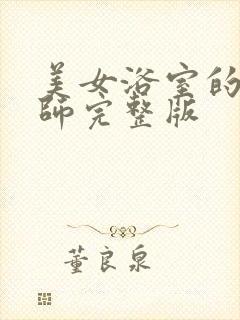 美女浴室的
師完整版
董良泉